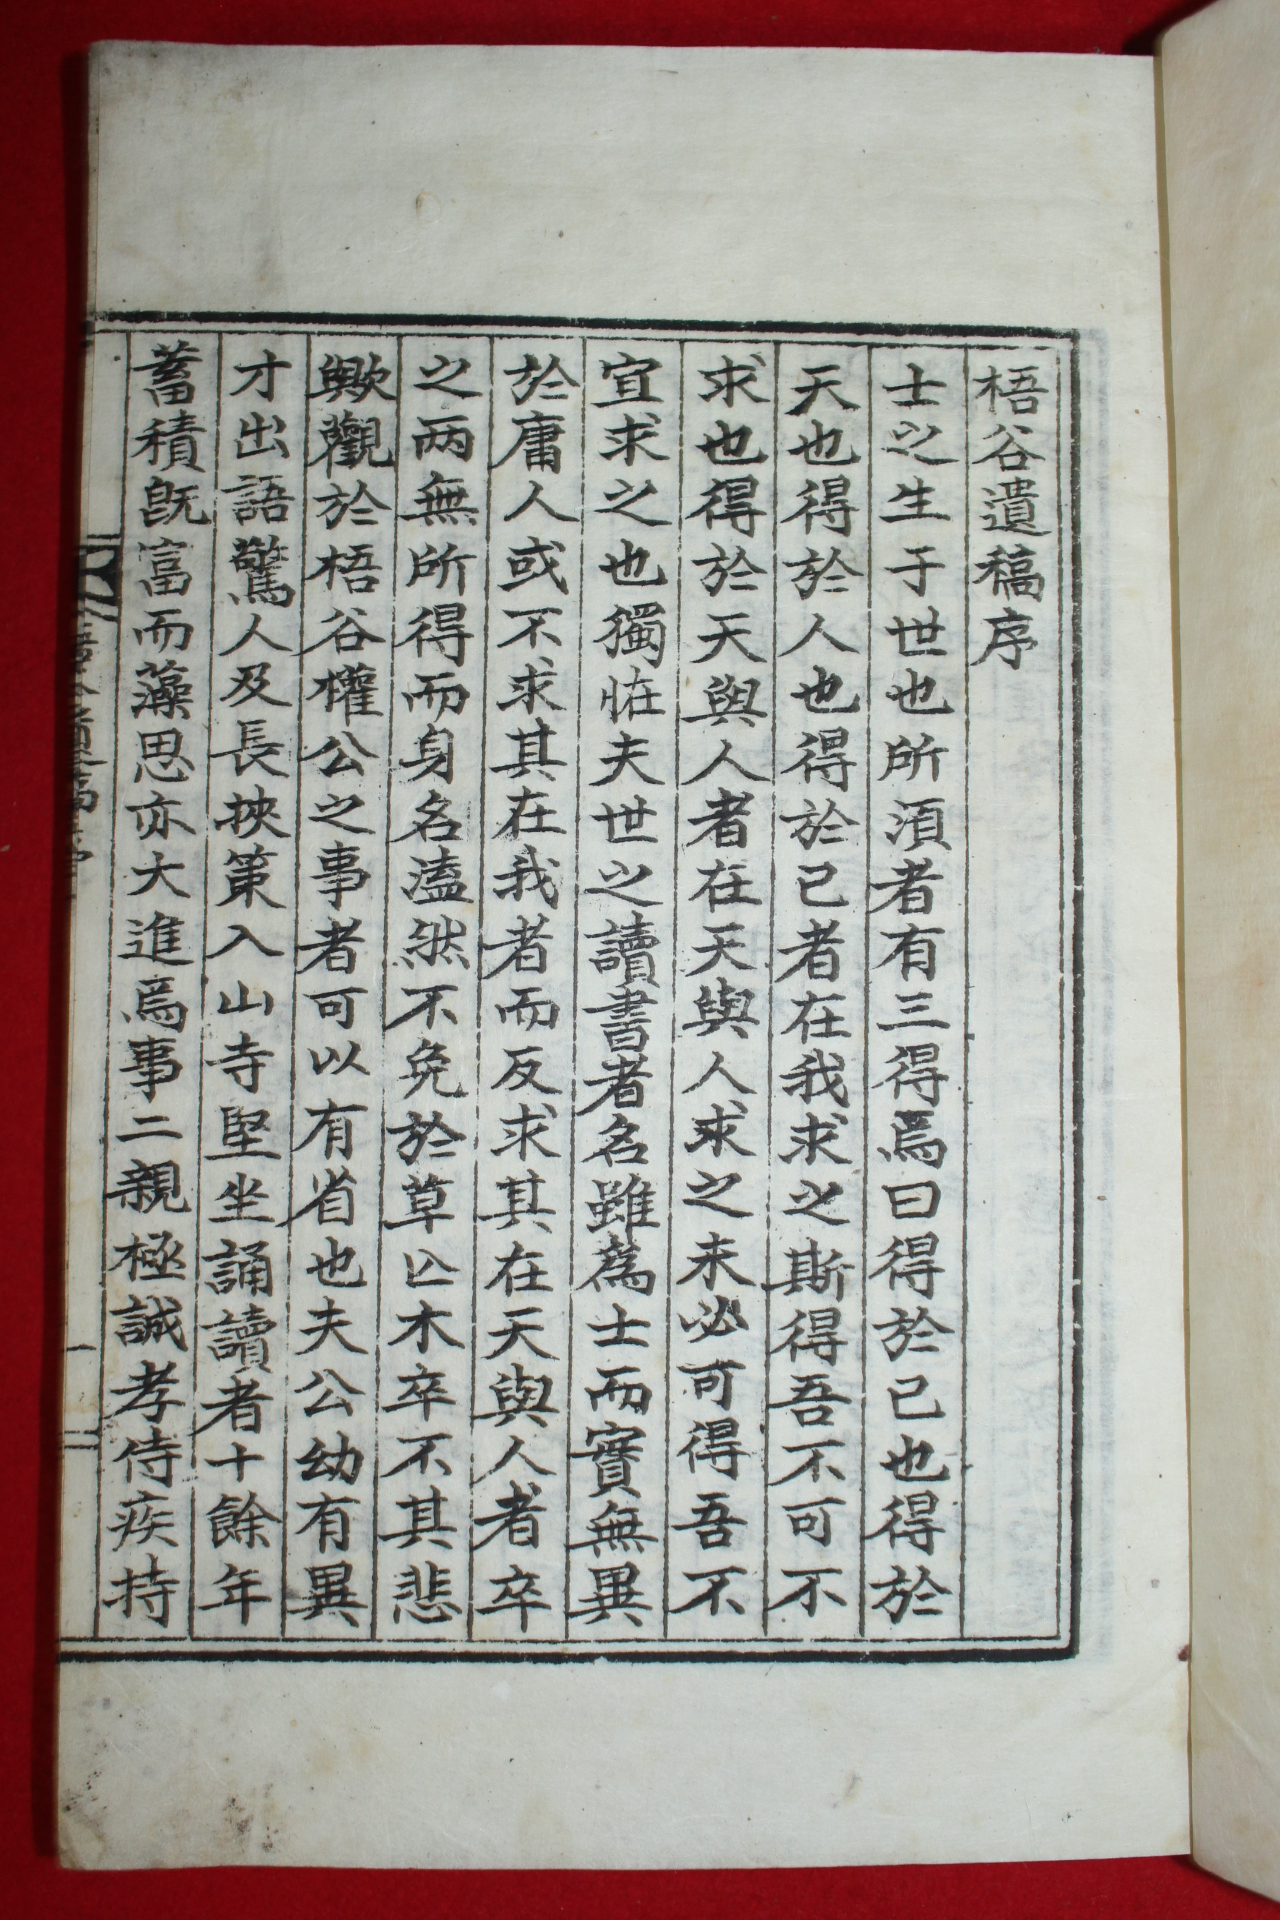 梧谷遺稿序
士之生于世也所湏者有三得焉曰得於己也得於
天也得於人也得於己者在我求之斯得吾不可不
求也得於天與人者在天與人求之未必可得吾不
宜求之也獨恠夫世之讀書者名雖爲士而實無異
於庸人或不求其在我者而反求其在天與人者卒
之兩無所得而身名溘然不免於草亡木卒不其悲
歟觀於梧谷權公之事者可以有省也夫公幼有異
才出語驚人及長挾策入山寺堅坐誦讀者十餘年
蓄積旣富而藻思亦大進焉事二親極誠孝侍疾持
梧谷遺稿序
一